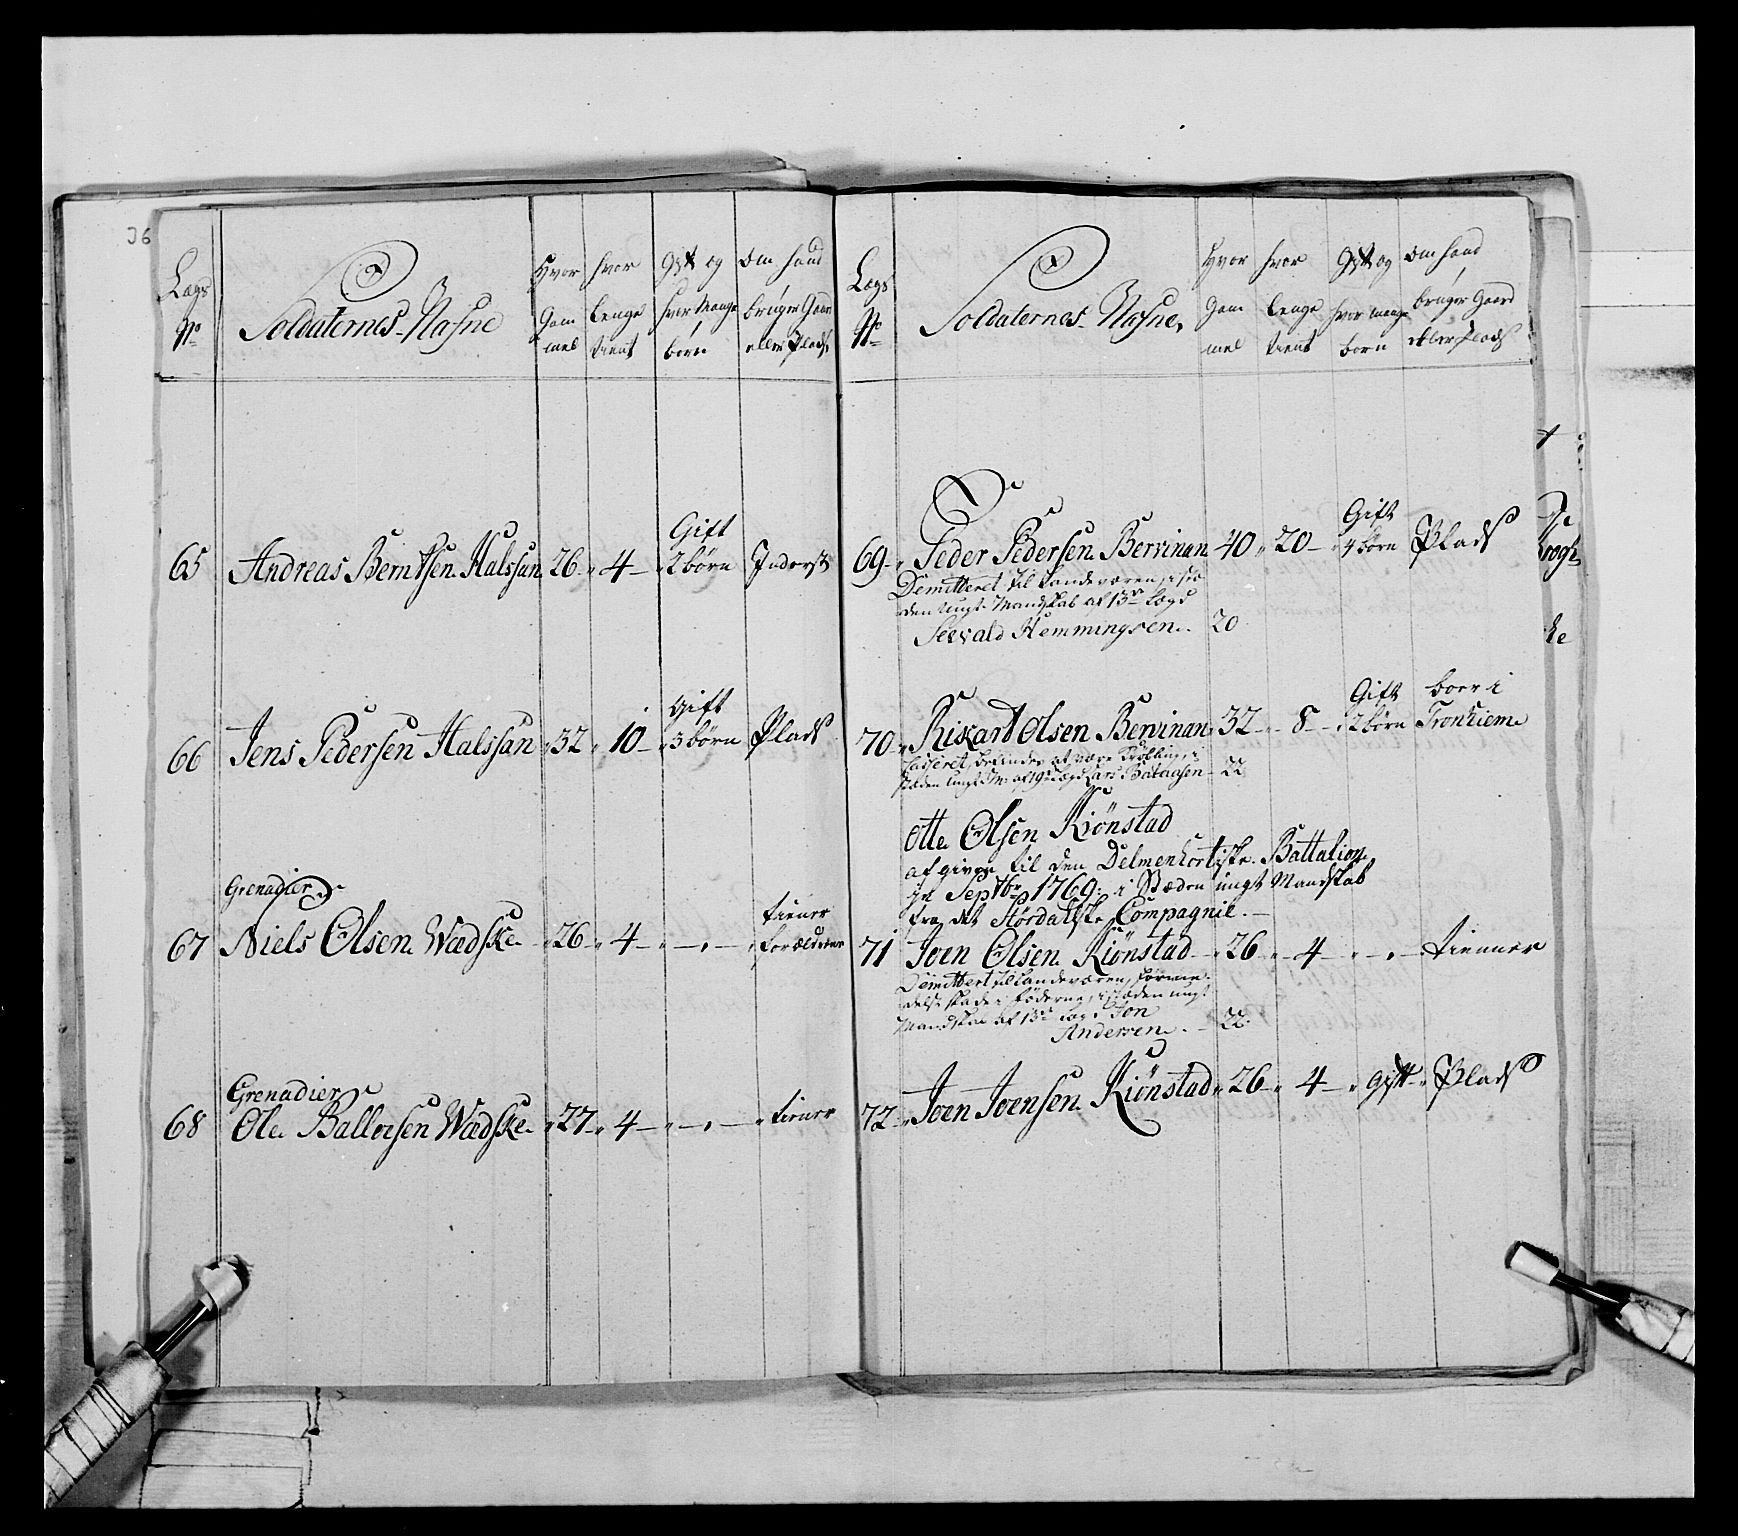 36
Lægs
No
Soldaternes Nafne
Hvor
Gam
mel
hvor
lenge
tient
Gift og
hvor Mange
børn
Om hand
bruger Gaard
eller Plads
65 Andreas Berntsen Halssan 26 4 Gift 2 børn Inderst
66 Jens Pedersen Halssan 32 10 Gift 3 børn Plads
Grenadier
67 Niels Olsen Wædske 26 4 - tiener Forældrene
Grenadier
68 Ole Ballersen Wædske 27 4 - tiener
Lægs
No
Soldaternes Nafne
Hvor
Gam
mel
hvor
lenge
tient
Gift og
hvor mange
børn
Om hand
bruger Gaard
eller Plads
69 Peder Pedersen Bervinan 40 20 Gift 4 børn Plads
Demitteret til Landeværen, i stæ
den ungt Mandskab af 13de Lægd
Seevald Hemmingsen 20
70 Rikard Olsen Bervinan 32 8 Gift 2 børn boer i Tronhiem
Casseret, befindes at være Krøbling, i
stæden ungt M. af 19de Lægd Lars 22
Otte Olsen Kiönstad
afgiven til den Delmenhortiske Battalion
i Septbr 1769, i Stæden ungt Mandskab
fra det Stördalske Compagnie
71 Joen Olsen Kiönstad 26 4 - tienner
Demittert til Landeværen, forme-
delst skade i Föderne, i stæden ungt
Mandskab af 13de Lægd Jon
Andersen 22
72 Joen Joensen Kiönstad 26 4 Gift Plads